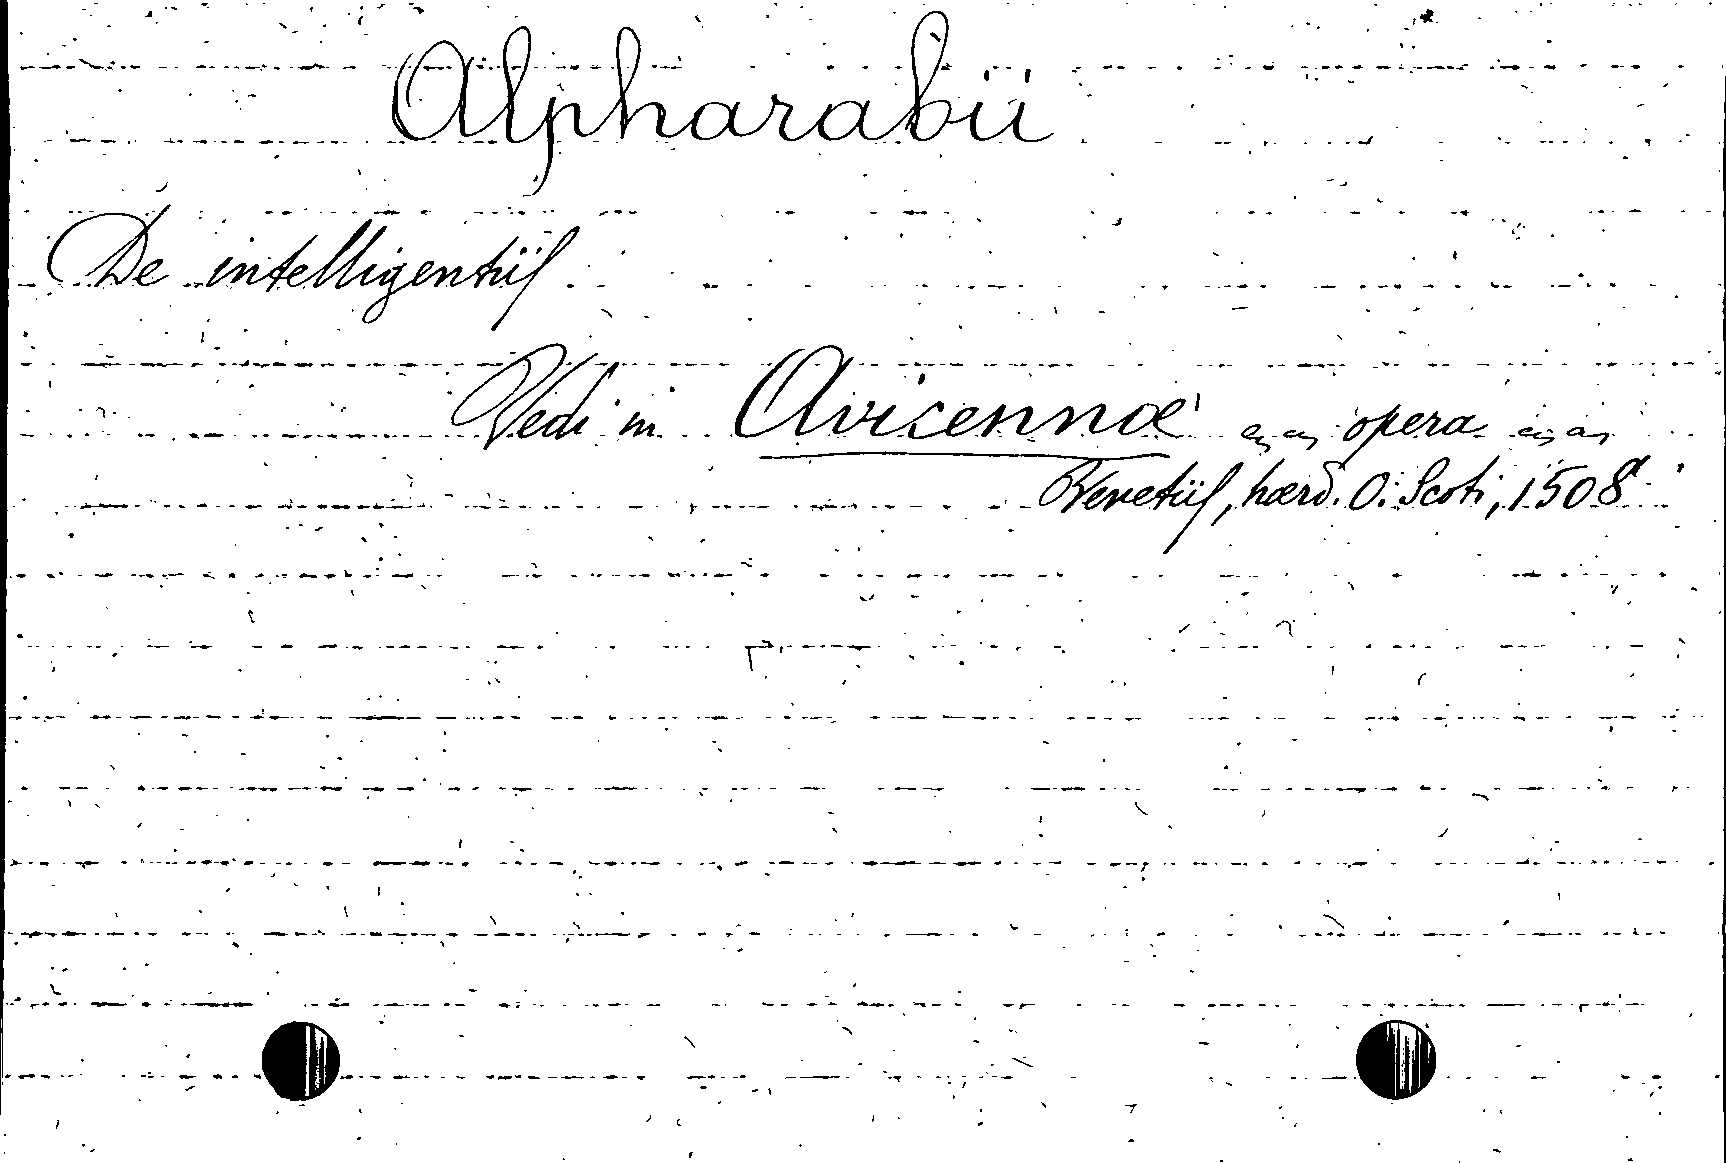 Alpharabii
De intelligentiis
Vedi in Avicennæ opera
Venetiis, hærd. O. Scoti, 1508